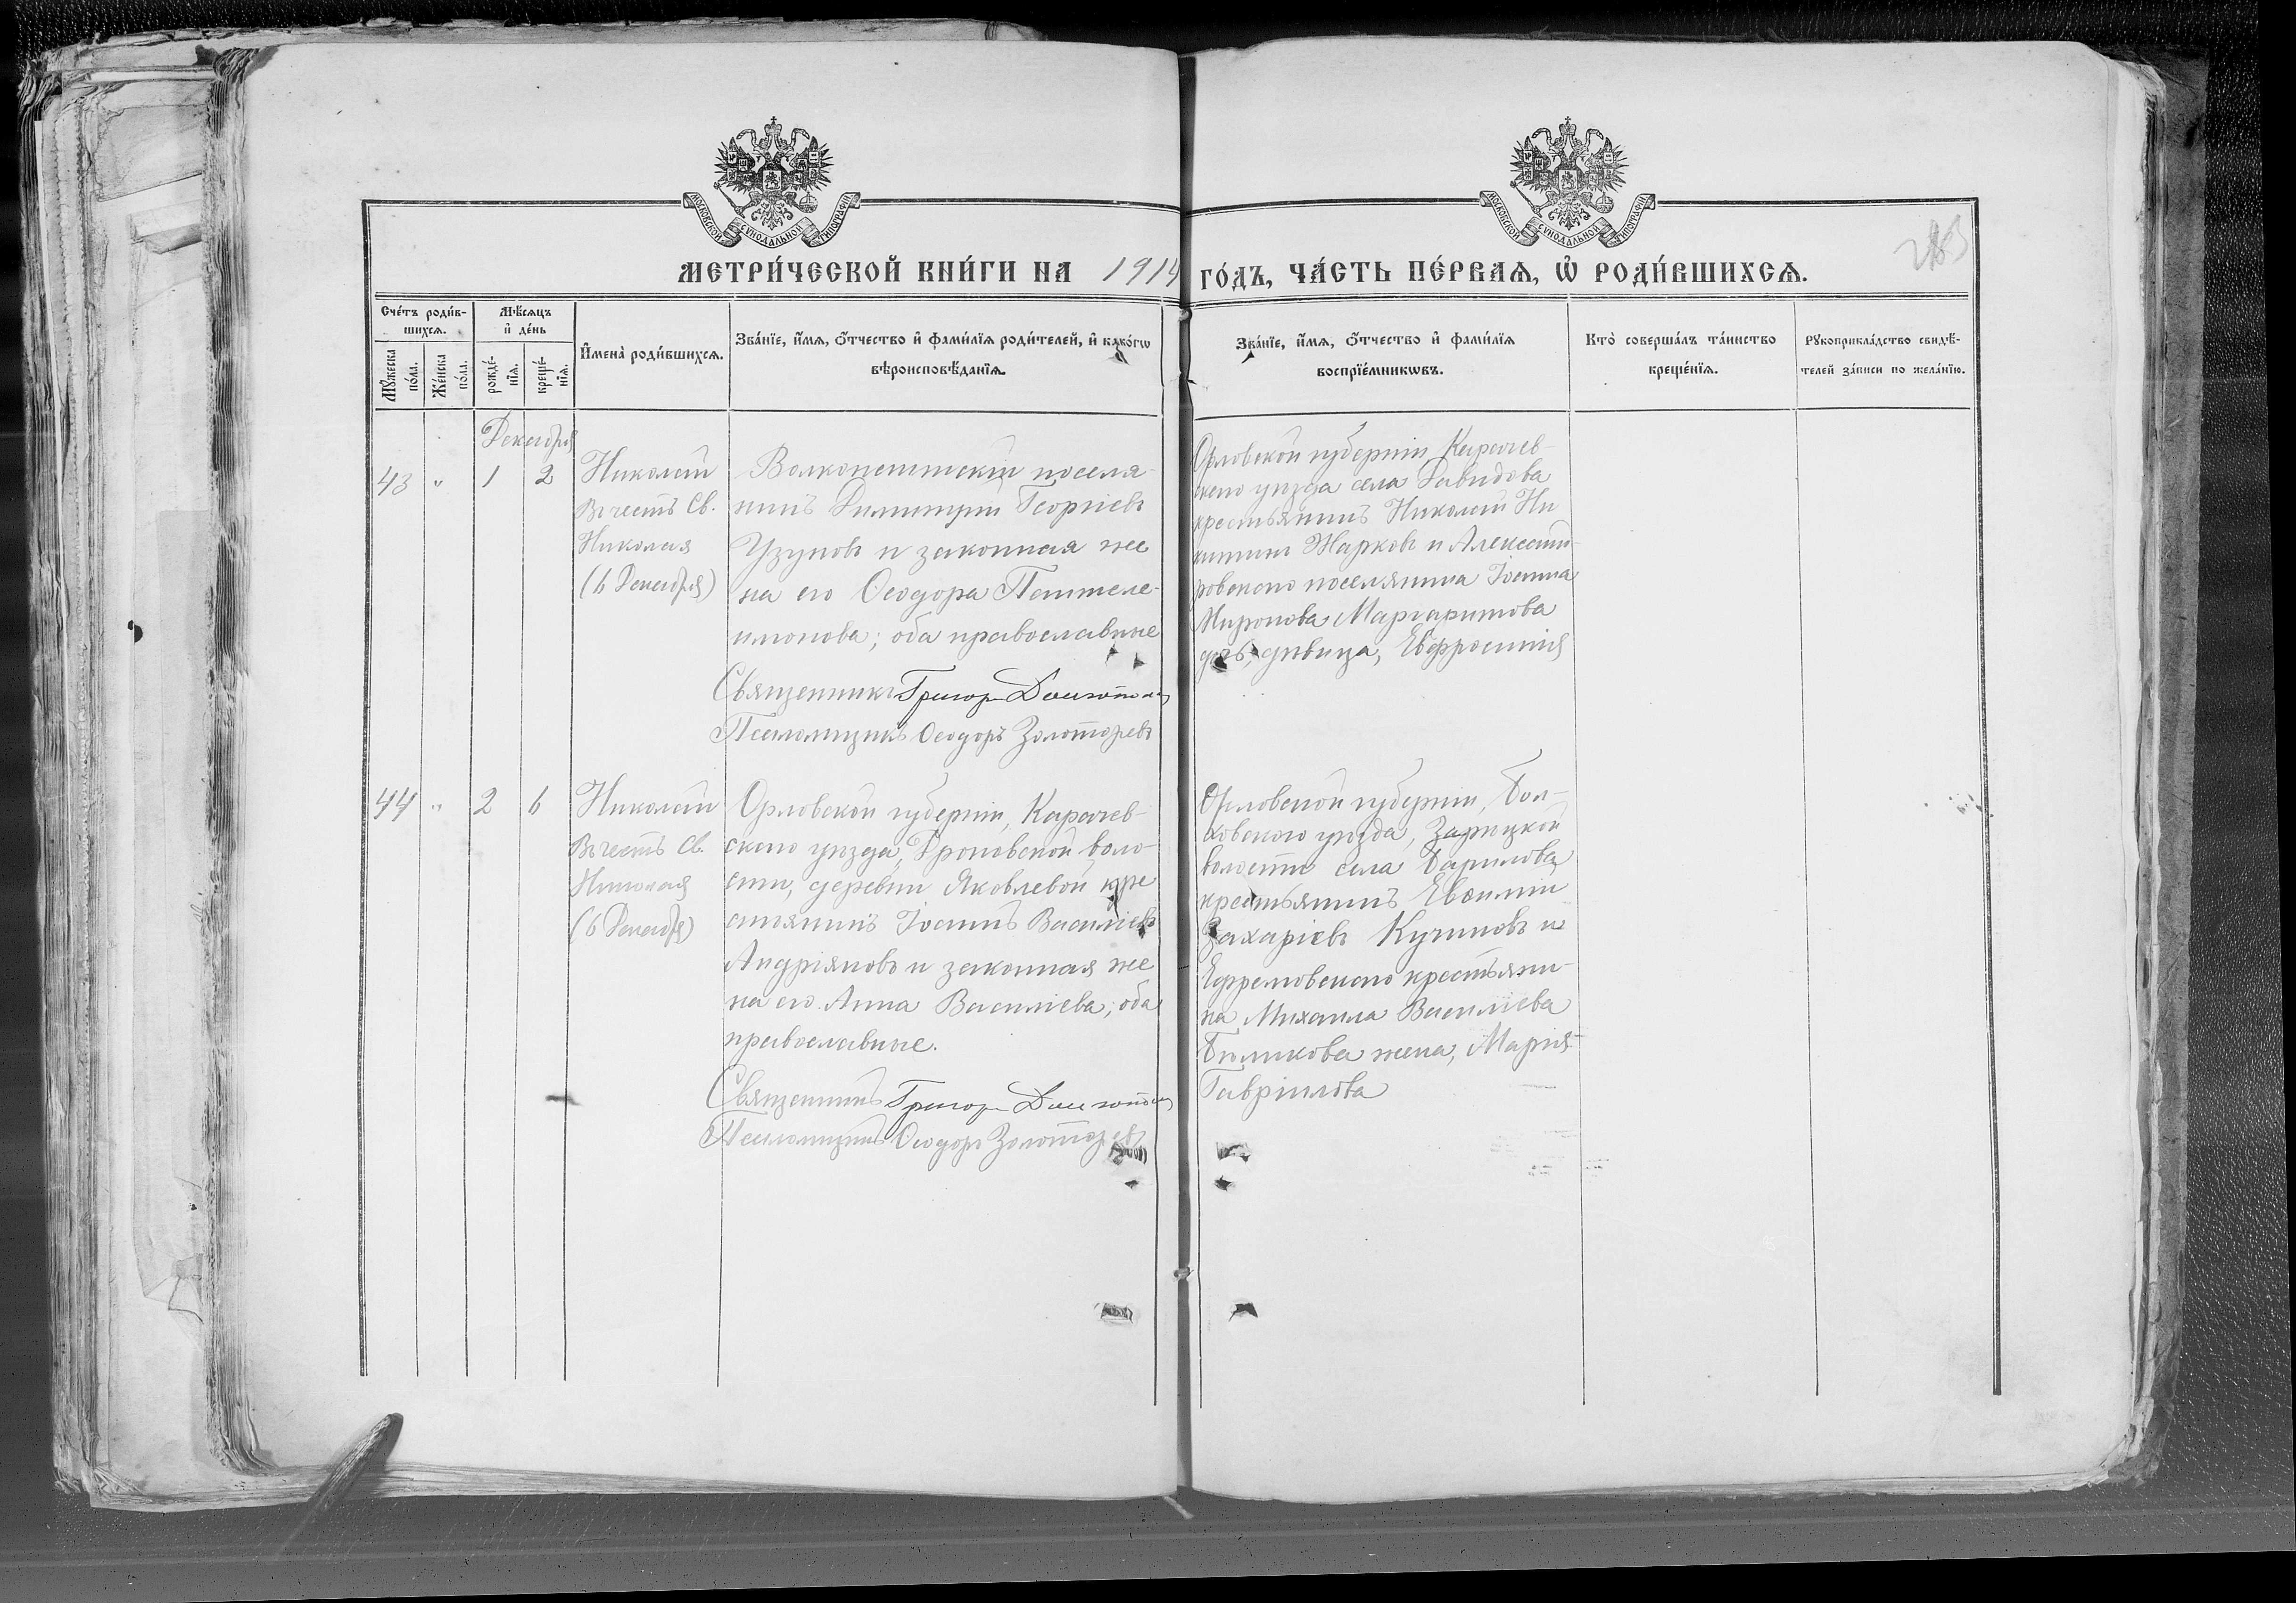 МОСКОВСКОЙ СУНОДАЛЬНОЙ ТИПОГРАФІИ
МОСКОВСКОЙ СУНОДАЛЬНОЙ ТИПОГРАФІИ
МЕТРИ́ЧЕСКОЙ КНИ́ГИ НА 1914 ГО́ДЪ, ЧА́СТЬ ПЕ́РВАѦ, Ѡ҆ РОДИ́ВШИХСѦ.
Сче́тъ роди́в-
шихсѧ.
Мꙋ́жеска по́ла.
Же́нска по́ла.
Мѣ́сѧцъ
и҆ де́нь
рожде́-
нїѧ.
креще́-
нїѧ.
И҆мена̀ роди́вшихсѧ.
Зва́нїе, и҆́мѧ, ѻ҆́тчество и҆ фами́лїѧ роди́телей, и҆ како́гѡ
вѣроисповѣ́данїѧ.
Зва́нїе, и҆́мѧ, ѻ҆́тчество и҆ фами́лїѧ
воспрїе́мникѡвъ.
Кто̀ соверша́лъ та́инство
креще́нїѧ.
Рꙋкоприкла́дство свидѣ́-
телей за́писи по жела́нїю.
Декабря
43 " 1 2
Николай
Въ честь Св.
Николая
(6 Декабря)
поселя-
нинъ Димитрій Георгіевъ
Узуновъ и законная же
на его Ѳеодора Пантеле-
имонова; оба православные
Священникъ Григор
Псаломщикъ Ѳеодоръ Золоторевъ
Орловской губерніи Карачев-
скаго уѣзда села Давидова
крестьянинъ Николай Ни
китинъ Жарковъ и Александ-
ровскаго поселянина Іоанна
Миронова Маргаритова
дочь, дѣвица, Евфросинія
44 " 2 6
Николай
Въ честь Св.
Николая
(6 Декабря)
Орловской губерніи, Карачев-
скаго уѣзда, Дроновской воло-
сти, деревни Яковлевой кре
стьянинъ Іоаннъ Василіевъ
Андріяновъ и законная же
на его Анна Василіева; оба
православные.
Священникъ Григор
Псаломщикъ Ѳеодоръ Золоторевъ
Орловской губерніи, Бол-
ховскаго уѣзда, Зарицкой
волости села
крестьянинъ Евѳимій
Захаріевъ Кучиновъ и
Ефремовскаго крестьяни-
на Михаила Василіева
жена, Марія
Гавріилова